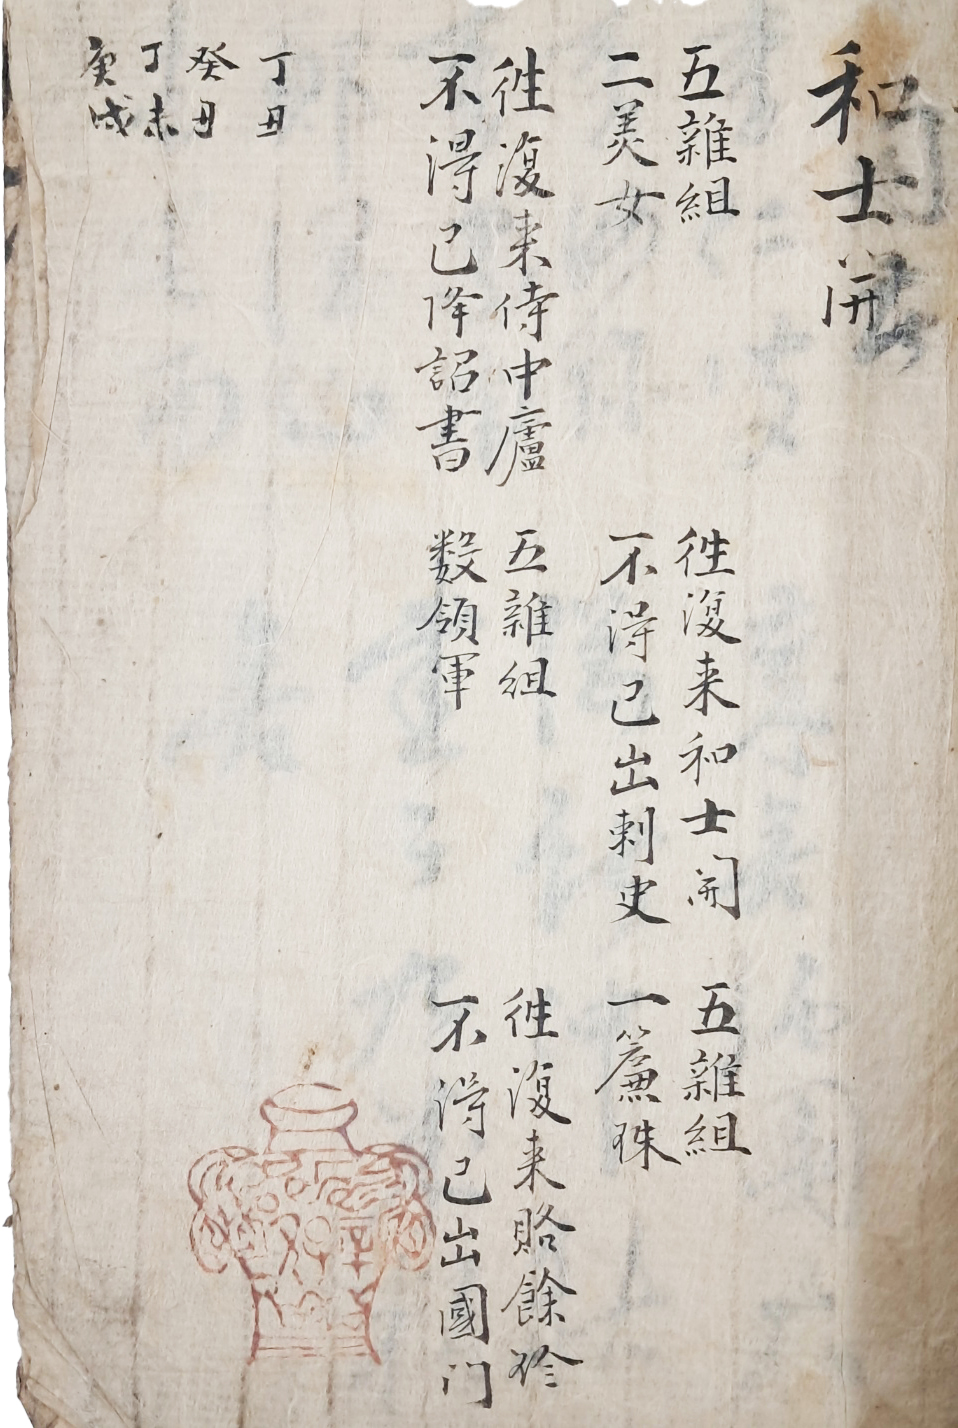 和士開
五雜組
二美女
徃復来和士開
不淂已出刺史
五雜組
一簾珠
徃復来侍中廬
不淂已降詔書
五雜組
数領軍
徃復来賂餘珎
不淂已出國门
丁丑
癸丑
丁未
庚戌